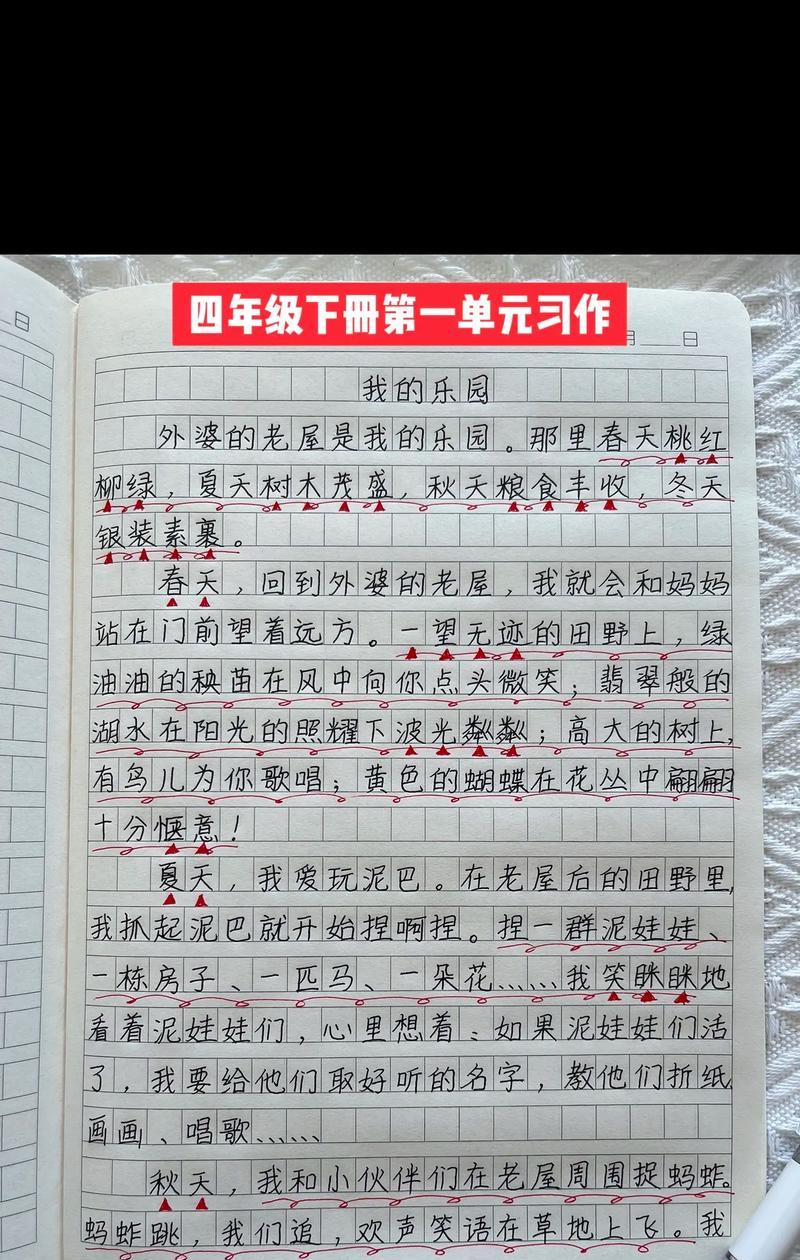 四年级下册第一单元习作
日
月 日
我的乐园
外婆的老屋是我的乐园。那里春天桃红
柳绿，夏天树木茂盛，秋天粮食丰收，冬天
银装素裹。
春天，回到外婆的老屋，我就会和妈妈
站在门前望着远方。一望无迹的田野上，绿
油油的秧苗在风中向你点头微笑；翡翠般的
湖水在阳光的照耀下波光粼粼；高大的树上，
有鸟儿为你歌唱；黄色的蝴蝶在花丛中翩翩
十分惬意！
夏天，我爱玩泥巴。在老屋后的田野里，
我抓起泥巴就开始捏啊捏。捏一群泥娃娃、
一栋房子、一匹马、一朵花……我笑眯眯地
看着泥娃娃们，心里想着：如果泥娃娃们活
了，我要给他们取好听的名字，教他们折纸
画画、唱歌……
秋天，我和小伙伴们在老屋周围捉蚂蚱。
蚂蚱跳，我们追，欢声笑语在草地上飞。我